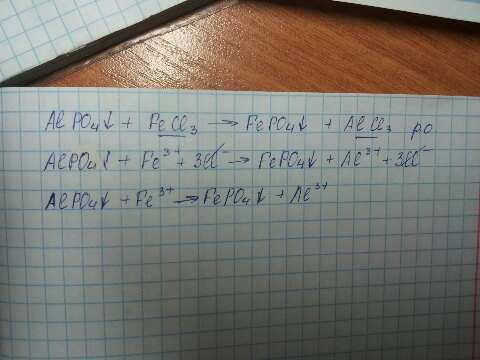 AlPO₄↓ + FeCl₃ → FePO₄↓ + AlCl₃ р.о
AlPO₄↓ + Fe³⁺ + 3Cl⁻ → FePO₄↓ + Al³⁺ + 3Cl⁻
AlPO₄↓ + Fe³⁺ → FePO₄↓ + Al³⁺